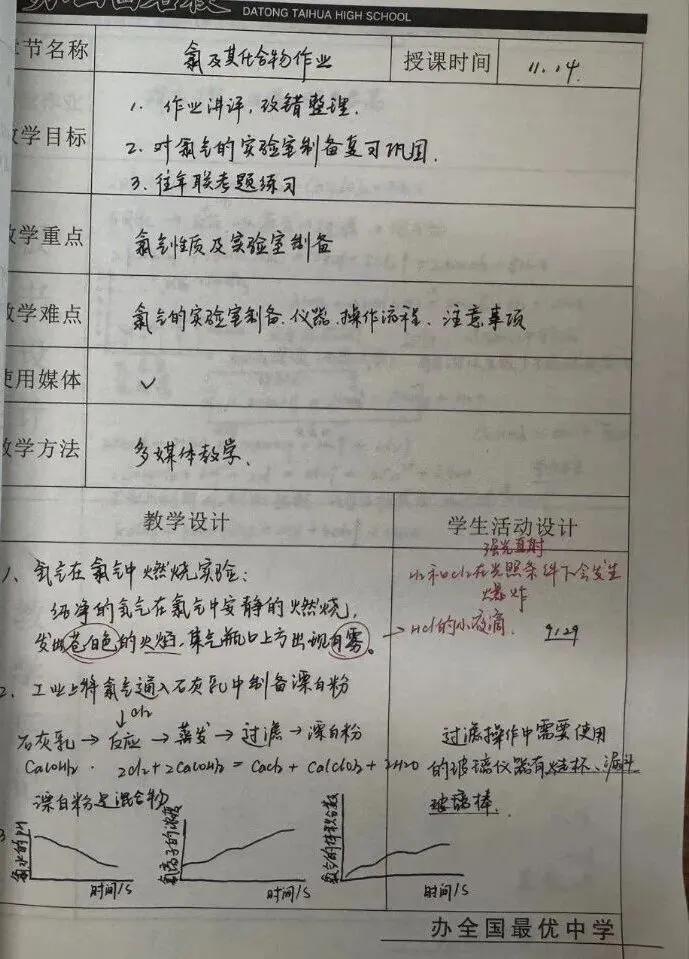 DATONG TAIHUA HIGH SCHOOL
章节名称 氯及其化合物作业 授课时间 11.14.
教学目标
1. 作业讲评,改错整理.
2. 对氯气的实验室制备复习巩固.
3. 往年联考题练习
教学重点 氯气性质及实验室制备
教学难点 氯气的实验室制备、仪器、操作流程、注意事项
使用媒体 ✓
教学方法 多媒体教学、
教学设计 学生活动设计
1、氢气在氯气中燃烧实验:
纯净的氢气在氯气中安静的燃烧,
发出苍白色的火焰,集气瓶口上方出现白雾。
强光直射
H2和Cl2在光照条件下会发生
爆炸
→ HCl的小液滴.
9129
2、工业上将氯气通入石灰乳中制备漂白粉
↓Cl2
石灰乳 → 反应 → 蒸发 → 过滤 → 漂白粉
Ca(OH)2 . 2Cl2+2Ca(OH)2 = CaCl2 + Ca(ClO)2 + 2H2O
漂白粉是混合物
过滤操作中需要使用
的玻璃仪器有烧杯、漏斗
玻璃棒.
3
氯水的PH
时间/s
氯离子的浓度
时间/s
氧气的体积分数
时间/s
办全国最优中学